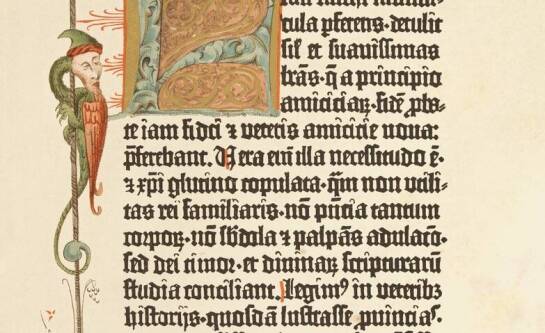 cula ꝑferens. detulit
sil̛ et suauissimas
lr̄as. q̄ a principio
amiciciaꝝ. fidē ꝓba-
te iam fidei ⁊ veteris amicicie noua:
p̄ferebant. Uera eni̅ illa necessitudo ē.
⁊ xp̄i glutino copulata. qm̄ non vtili-
tas rei familiaris. nō p̄ncia tantum
corpoꝝ. nō sb̄dola ⁊ palpās adulacō.
sed dei timor. et diuinaꝝ scripturarū
studia conciliant. Legimꝰ in veteribꝫ
historijs. quosdā lustrasse ꝓuīciaˢ.